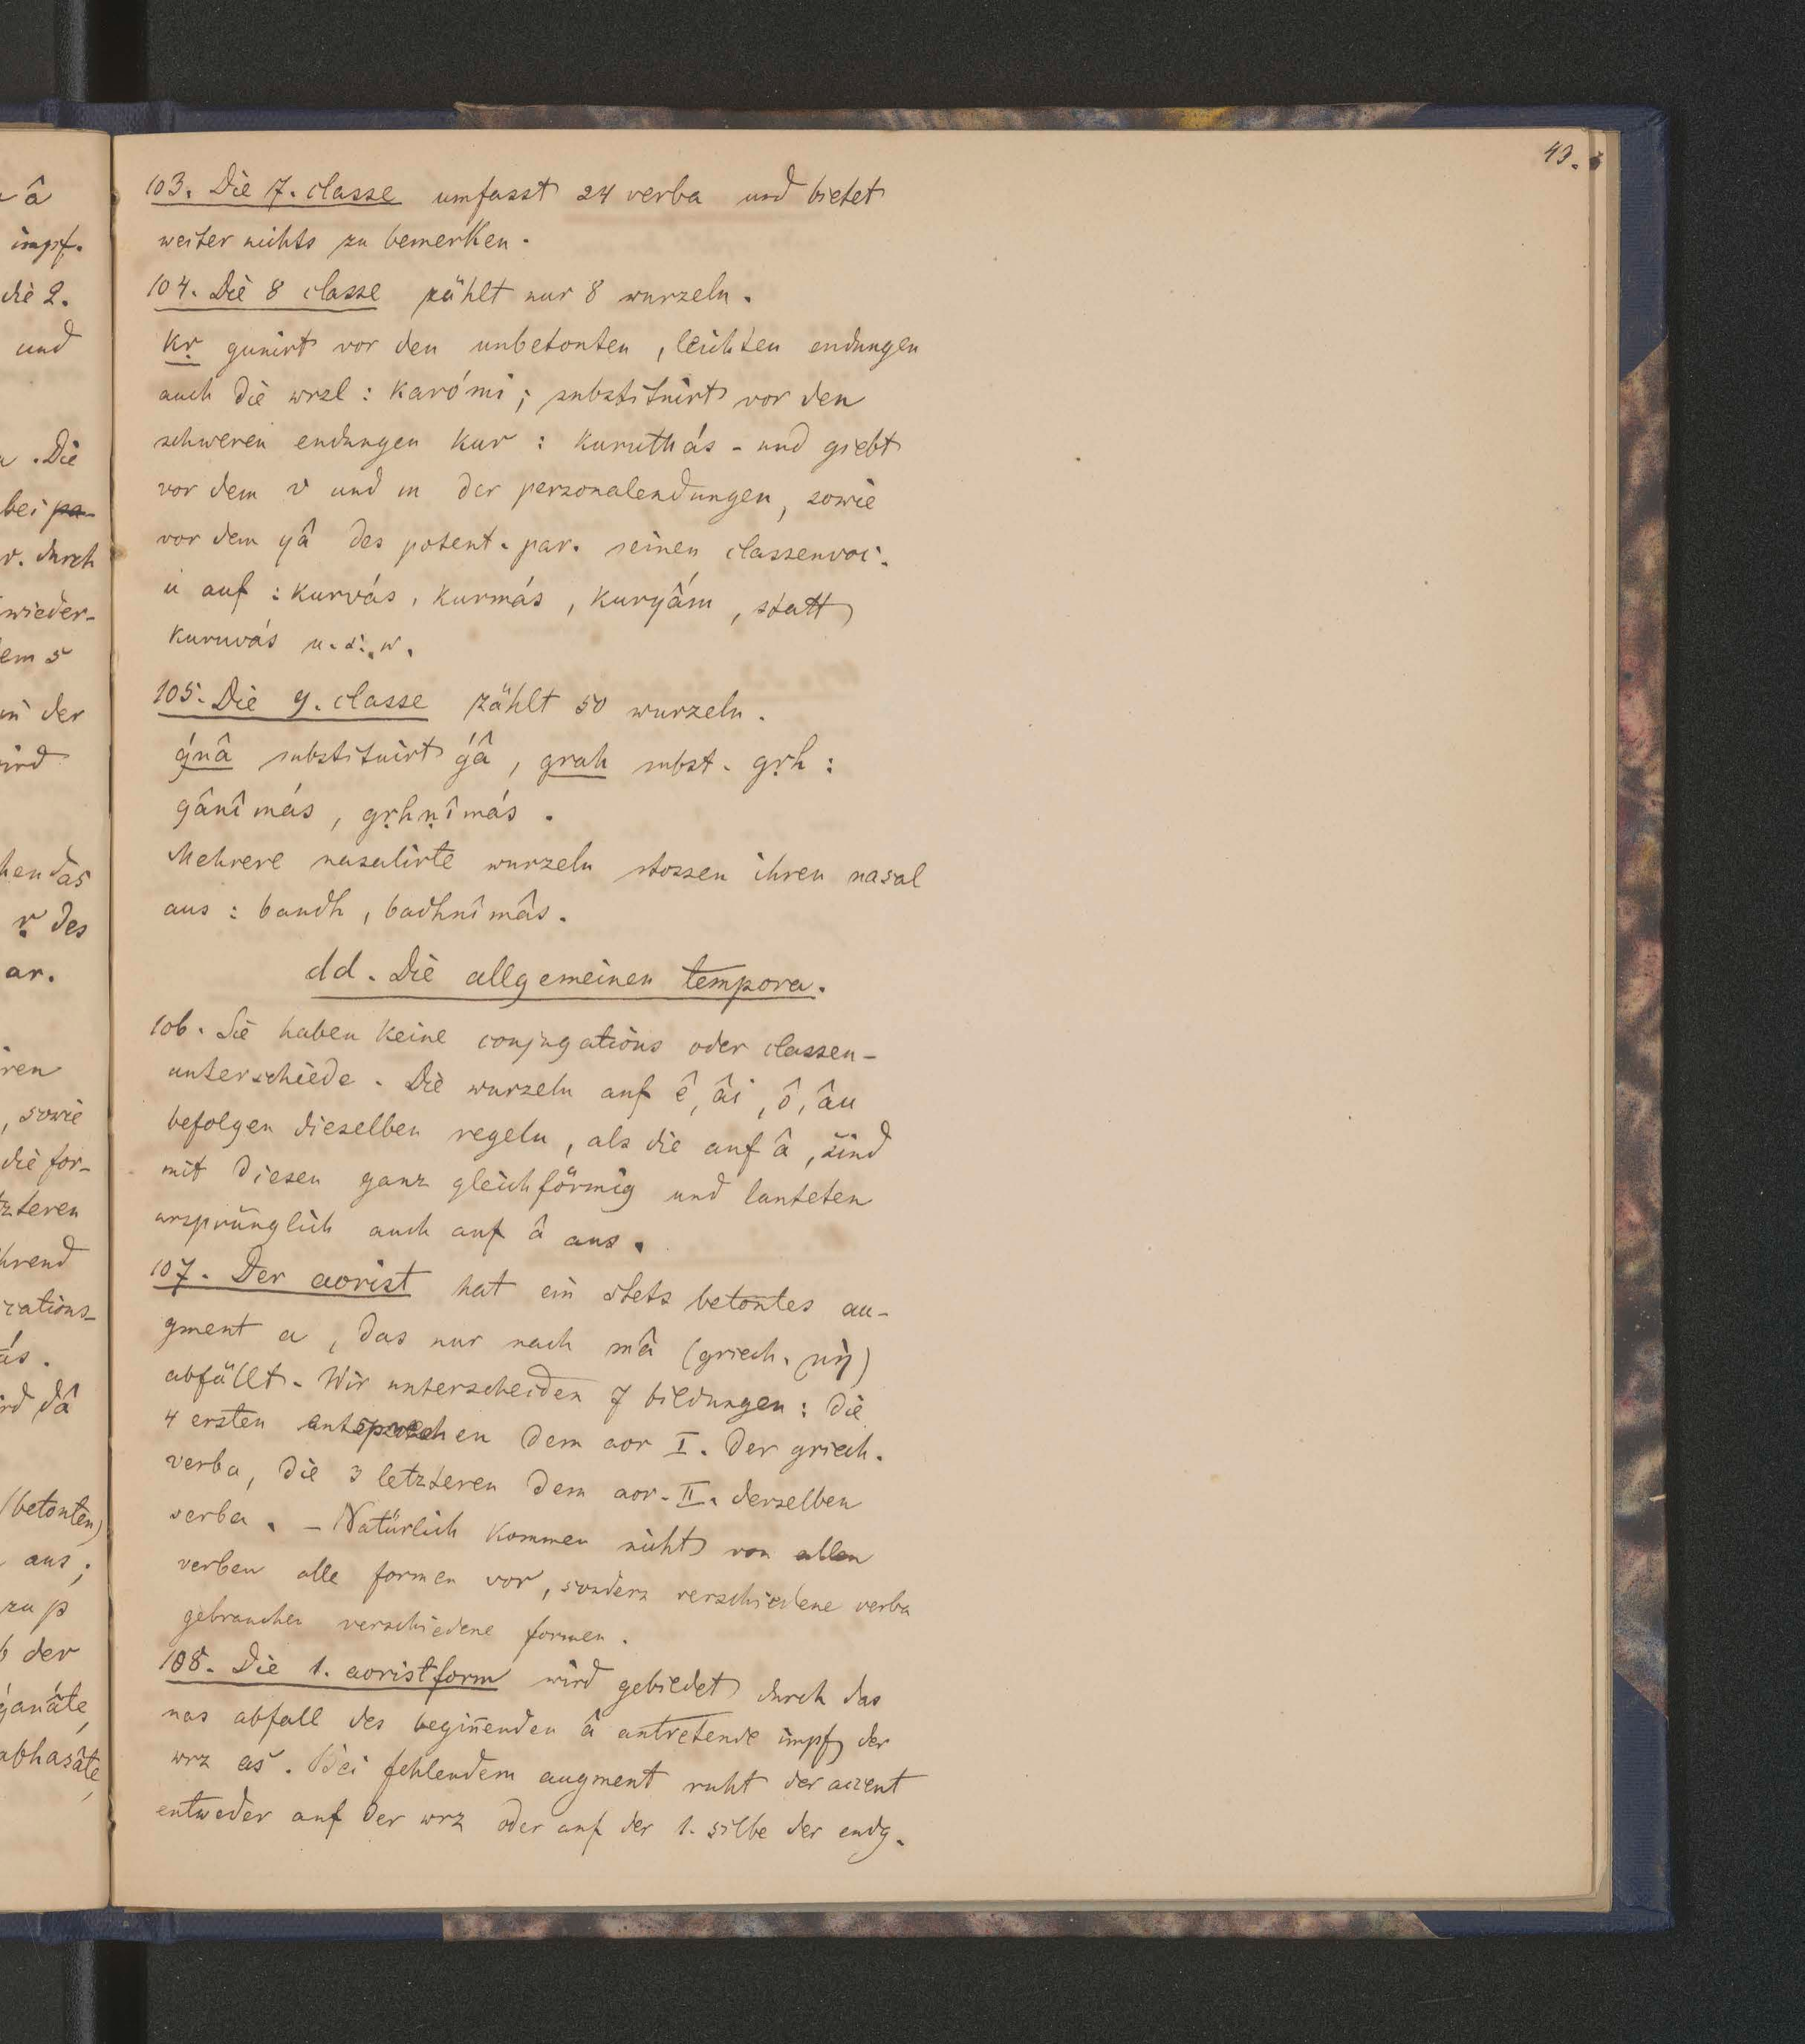 43.
103. Die 7. classe umfasst 24 verba und bietet
weiter nichts zu bemerken.
104. Die 8 classe zählt nur 8 wurzeln.
kṛ gunirt vor den unbetonten, leichten endungen
auch die wrzl: karómi; substituirt vor den
schweren endungen kur: kuruthás - und giebt
vor dem v und m der personalendungen, sowie
vor dem yâ des potent. par. seinen classenvoc.
u auf: kurvás, kurmás, kuryấm, statt
kuruvás u. s. w.
105. Die 9. classe zählt 50 wurzeln.
ǵnâ substituirt ǵâ, grah subst. gṛh:
gânîmás, gṛhṇîmás.
Mehrere nasalirte wurzeln stossen ihren nasal
aus: bandh, badhnîmâs.
dd. Die allgemeinen tempora.
106. Sie haben keine conjugations oder classen-
unterschiede. Die wurzeln auf ê, âi, ô, âu
befolgen dieselben regeln, als die auf â, sind
mit diesen ganz gleichförmig und lauteten
ursprünglich auch auf â aus.
107. Der aorist hat ein stets betontes au-
gment a, das nur nach mâ (griech. μὴ)
abfällt. Wir unterscheiden 7 bildungen: die
4 ersten entsprechen dem aor I. der griech.
verba, die 3 letzteren dem aor. II. derselben
verba. - Natürlich kommen nicht von allen
verben alle formen vor, sondern verschiedene verba
gebrauchen verschiedene formen.
108. Die 1. aoristform wird gebildet durch das
nas abfall des begin̄enden â antretende impf der
wrz as. Bei fehlendem augment ruht der accent
entweder auf der wrz oder auf der 1. silbe der endg.